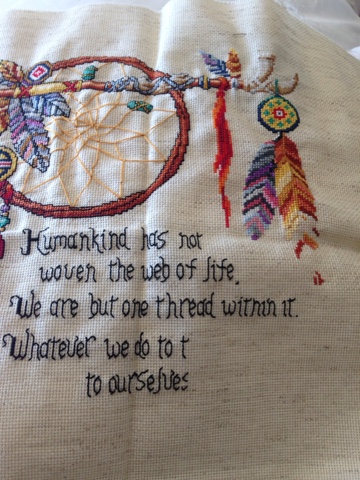 Humankind has not
woven the web of life.
We are but one thread within it.
Whatever we do to t
to ourselves